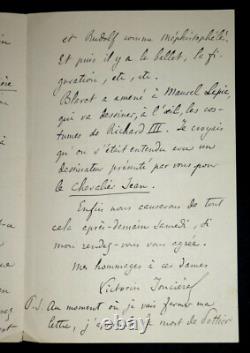 et Rudolf comme Méphistophélès.
Et puis il y a le ballet, la fi-
guration, etc, etc.
Blavot a amené à Mausel Lépic,
qui va dessiner, à l'œil, les cos-
tumes de Richard III. Je croyais
qu'on s'était entendu avec un
dessinateur présenté par vous pour
le Chevalier Jean.
Enfin nous causerons de tout
cela après-demain Samedi, si
mon rendez-vous vous agrée.
Mes hommages à ces dames
Victorin Joncières
P.S. Au moment où je vais fermer ma
lettre, j' la mort de